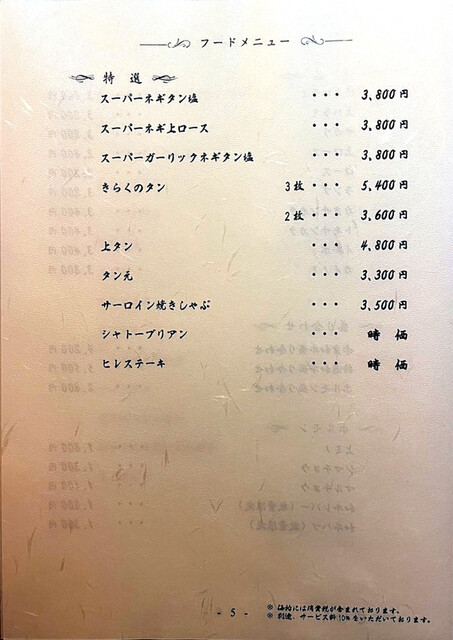 フードメニュー
特選
スーパーネギタン塩 ・・・ 3,800円
スーパーネギ上ロース ・・・ 3,800円
スーパーガーリックネギタン塩 ・・・ 3,800円
きらくのタン 3枚・・・ 5,400円
2枚・・・ 3,600円
上タン ・・・ 4,800円
タン元 ・・・ 3,300円
サーロイン焼きしゃぶ ・・・ 3,500円
シャトーブリアン ・・・ 時価
ヒレステーキ ・・・ 時価
- 5 -
※ 価格には消費税が含まれております。
※ 別途、サービス料10%をいただいております。